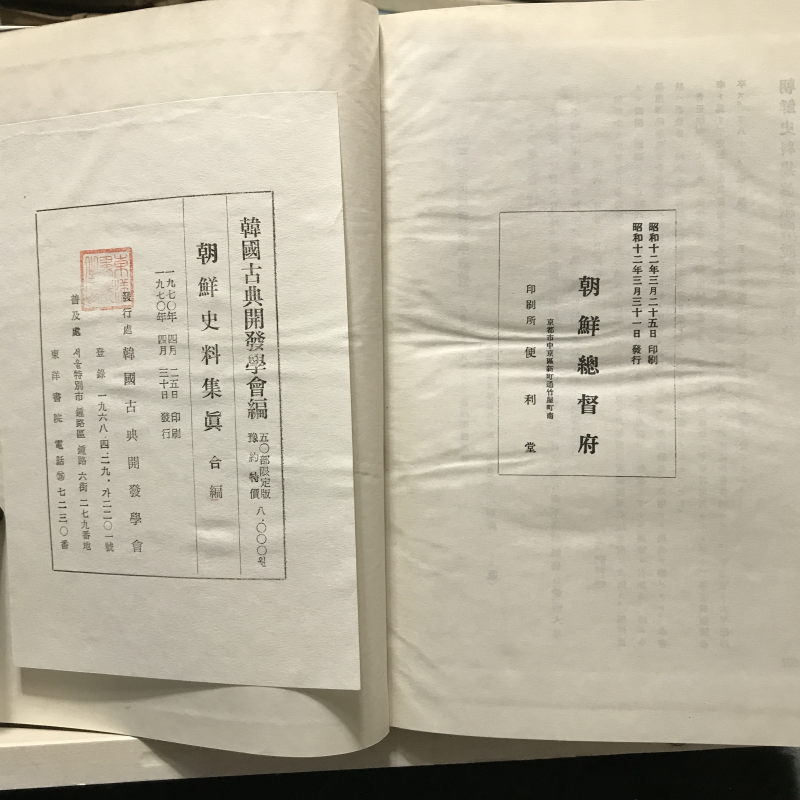 昭和十二年三月二十五日 印刷
昭和十二年三月三十一日 發行
朝鮮總督府
京都市中京區新町通竹屋町南
印刷所 便利堂
韓國古典開發學會編
五〇部限定版
豫約特價 八·〇〇〇원
朝鮮史料集眞 合編
一九七〇年 四月 二五日 印刷
一九七〇年 四月 三十日 發行
發行處 韓國古典開發學會
登錄 一九六八·四·二九·가二二〇一號
普及處 서울特別市 鍾路區 鍾路 六街 二七九番地
東洋書院 電話 七二三〇番